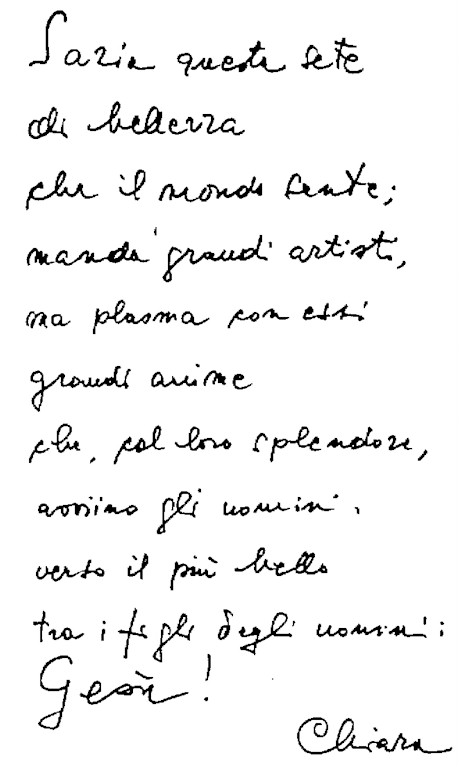 Sazia questa sete
di bellezza
che il mondo sente;
manda grandi artisti,
ma plasma con essi
grandi anime
che, col loro splendore,
avviino gli uomini
verso il più bello
tra i figli degli uomini:
Gesù!
Chiara